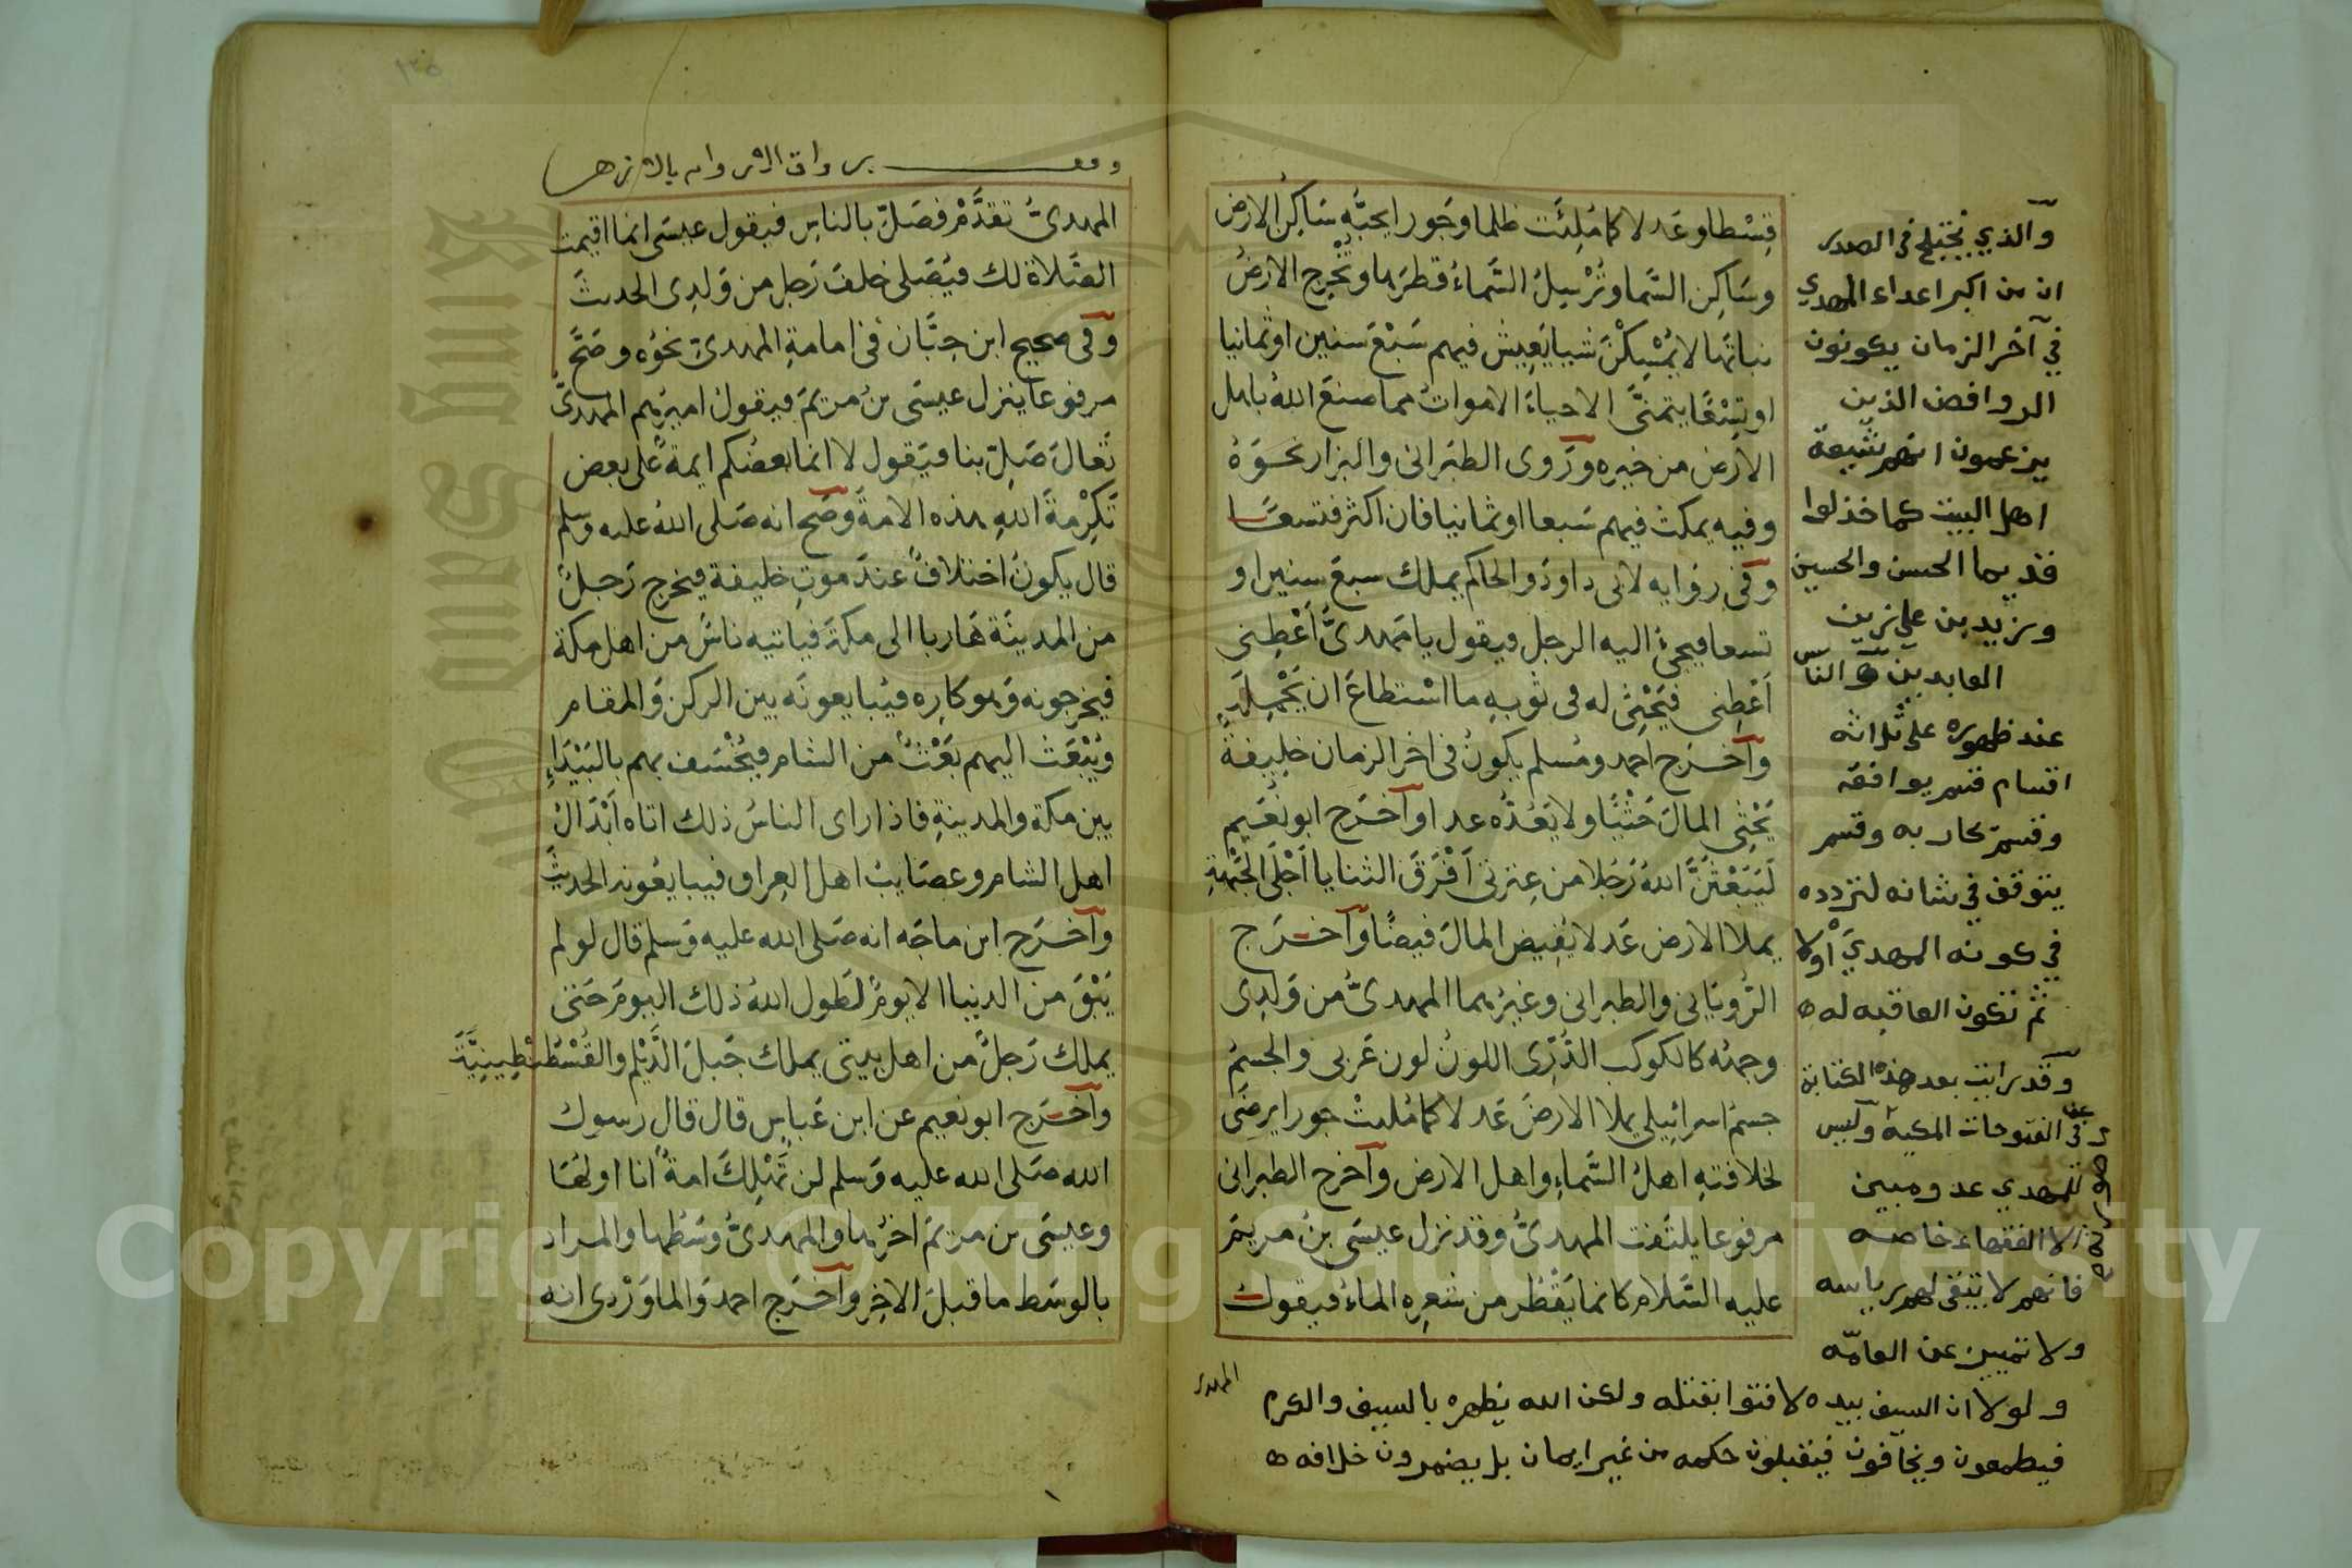 قِسْطا وعَدلا كما مُلِئَت ظلما وجَورا يحبُّه سَاكِن الارض
وسَاكِن السَّما وتُرْسِلُ السَّماءُ قطرَها وتُخْرِج الارضُ
نباتَها لا تُمْسِكْنَ شيا يَعِيش فيهم سَبْعَ سنين او ثمانيا
او تِسْعًا يتمنَّى الاحياءُ الامواتَ مما صنعَ اللهُ باهل
الارض من خيره ورَوى الطبرانى والبزار نحوَهُ
وفيه يمكث فيهم سَبعا او ثمانيا فان اكثر فتسعًا
وفى روَايه لابى داودَ والحاكم يملك سبعَ سنين او
تسعا فيجئُ اليه الرجل فيقول يا مَهدىُّ اَعْطِنى
اَعْطِنى فيَحْثِى له فى ثوبِهِ ما اسْتطاعَ ان يَحْمِلَه
وآخرَج احمد ومُسلم يكونُ فى اخر الزمان خليفةٌ
يَحْثِى المالَ حَثْيًا ولا يَعُدُّه عدا وآخرَج ابونُعَيم
لَيَبْعَثَنَّ اللهُ رَجُلا من عِترتى اَفْرَقَ الثنايا اَجْلَى الجَبْهةِ
يملا الارض عَدلا يُفِيض المالَ فيضًا وآخرَج
الرُّويَانى والطبرانى وغيرُهما المهدىُّ من وَلدِى
وجهُه كالكوكب الدُّرِّى اللونُ لون عَربى والجسمُ
جسمَ اسرائيلى يملا الارضَ عَدلا كما مُلئتْ جورا يرضَى
لخلافتهِ اهلُ السَّماءِ واهل الارض وآخرج الطبرانى
مرفوعا يلتفت المهدىُّ وقد نزل عيسَى بنُ مريمَ
عليه السَّلام كانما يَقْطُر من شعرِه الماءُ فيقولُ
المهدى
والذي يختلج فى الصدر
ان من اكبر اعداء المهدي
في آخر الزمان يكونون
الروافض الذين
يزعمون انهم شيعة
اهل البيت كما خذلوا
قديما الحسن والحسين
وزيد بن علي زين
العابدين ه والناس
عند ظهوره على ثلاثه
اقسام قسم يوافقه
وقسم يحاربه وقسم
يتوقف في شانه لتردده
في كونه المهدي أولا
ثم تكون العاقبه له ه
وقد رايت بعد هذه الكتابة
فى الفتوحات المكية وليس
للمهدي عدو مبين
الا الفقهاء خاصه
فانهم لا تبقى لهم رياسه
ولا تمييز عن العامّه
ولولا ان السيف بيده لافتوا بقتله ولكن الله يظهره بالسيف والكرم
فيطمعون ويخافون فيقبلون حكمه من غير ايمان بل يضمرون خلافه ه
١٣٥
المهدىُّ تقدَّمْ فصَلِّ بالناسِ فيقول عيسَى انما اقيمت
الصَّلاة لك فيُصَلى خلفَ رَجل من وَلدِى الحديثَ
وفى صحيح ابن حِبَّان فى امامةِ المهدىِّ نحوُه وصَحَّ
مرفوعا ينزل عيسَى بنُ مريمَ فيقول اميرُهم المهدىُّ
تَعالَ صَلِّ بنا فيَقول لا انما بعضُكم ايمةٌ على بعض
تَكْرِمةَ اللهِ هذه الامةَ وصَح انه صَلى اللهُ عليه وسلم
قال يكونُ اختلافٌ عندَ موتِ خليفة فيخرج رَجلٌ
من المدينَة هَاربا الى مكةَ فياتيه ناسٌ من اهل مكة
فيخرجونه وَهو كارِه فيُبايعونَه بين الركن وَالمقام
ويُبْعَث اليهم بَعْثٌ من الشام فيُخْسَف بهم بالبَيْدَاءِ
بين مكة والمدينةِ فاذا راى الناسُ ذلك اتاه اَبْدَالُ
اهل الشام وعصَايبُ اهل العِراق فيبايعُونه الحديثَ
وآخرَج ابن ماجَه انه صَلى الله عليه وَسلم قال لو لم
يَبْقَ من الدنيا الا يومٌ لطَول اللهُ ذلك اليومَ حَتى
يملكَ رَجلٌ من اهل بيتى يملك جَبلَ الدَّيْلم والقُسْطنْطِينِيَّةَ
وآخرَج ابونعيم عن ابن عَباس قال قال رسول
الله صَلى الله عليه وَسلم لن تَهْلِكَ امةٌ انا اولهُا
وعيسَى بن مريَمَ اخرُها والمهدىُّ وسَطُها والمراد
بالوسَط ما قبلَ الاخِر وآخرَج احمد وَالماوَرْدى انه